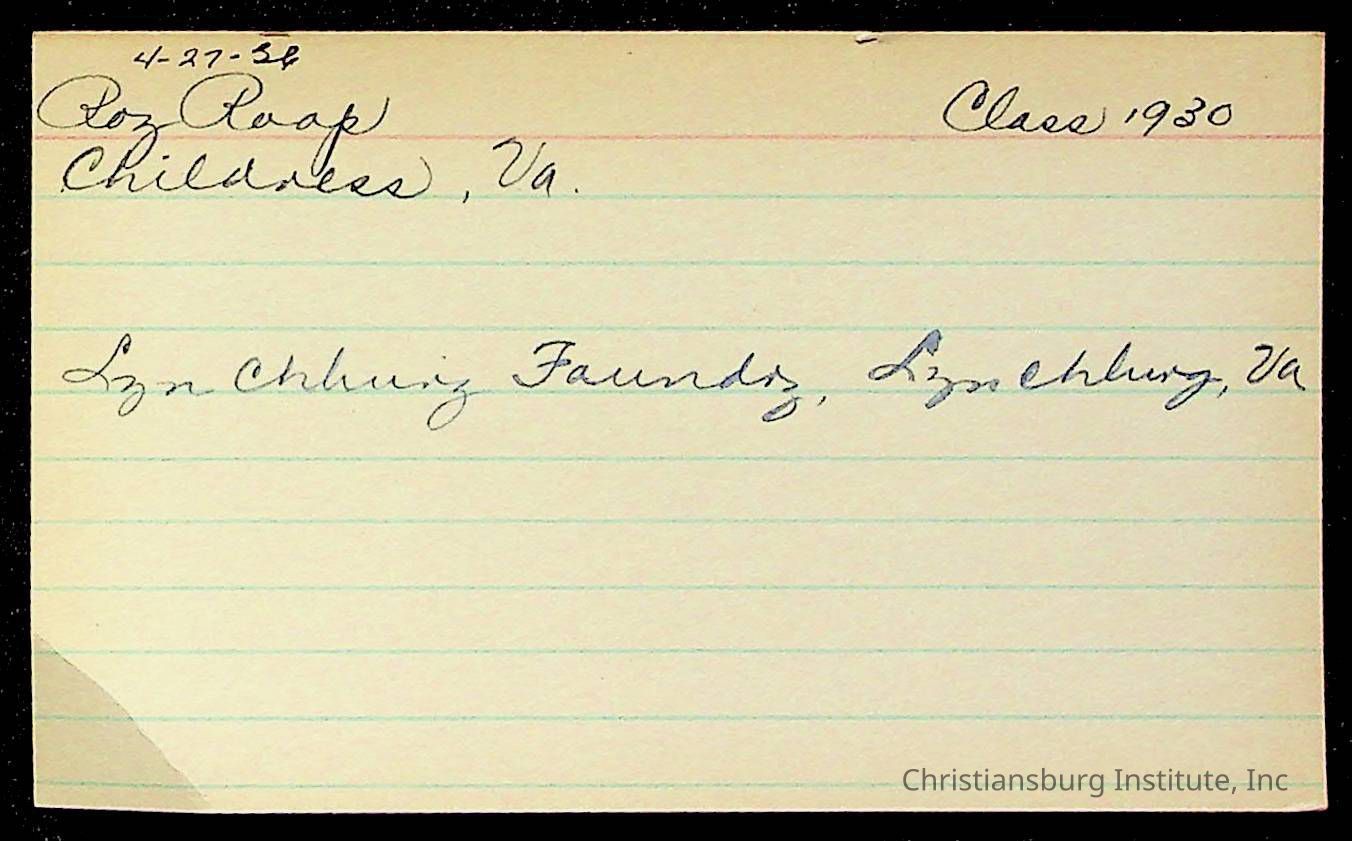 4-27-36
Roy Roop
Class 1930
Childress, Va.
Lynchburg Foundry, Lynchburg, Va
Christiansburg Institute, Inc